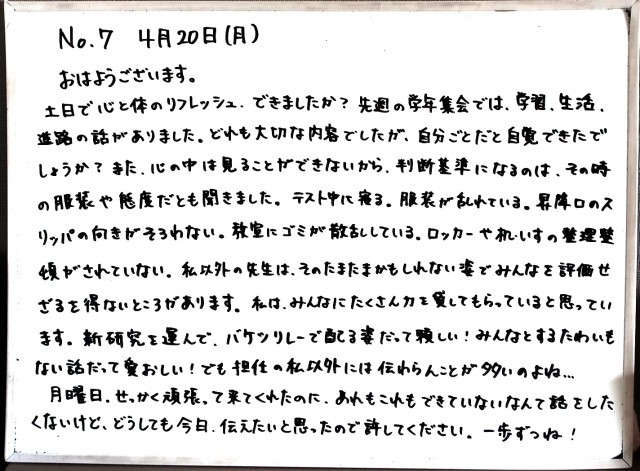 No.7 4月20日(月)
おはようございます。
土日で心と体のリフレッシュ、できましたか？先週の学年集会では、学習、生活、
進路の話がありました。どれも大切な内容でしたが、自分ごとだと自覚できたで
しょうか？また、心の中は見ることができないから、判断基準になるのは、その時
の服装や態度だとも聞きました。テスト中に寝る。服装が乱れている。昇降口のス
リッパの向きがそろわない。教室にゴミが散乱している。ロッカーや机・いすの整理整
頓がされていない。私以外の先生は、そのたまたまかもしれない姿でみんなを評価せ
ざるを得ないところがあります。私は、みんなにたくさん力を貸してもらっていると思ってい
ます。新研究を運んで、バケツリレーで配る姿だって頼しい！みんなとするたわいも
ない話だって愛おしい！でも担任の私以外には伝わらんことが多いのよね…
月曜日、せっかく頑張って来てくれたのに、あれもこれもできていないなんて話をした
くないけど、どうしても今日、伝えたいと思ったので許してください。一歩ずつね！